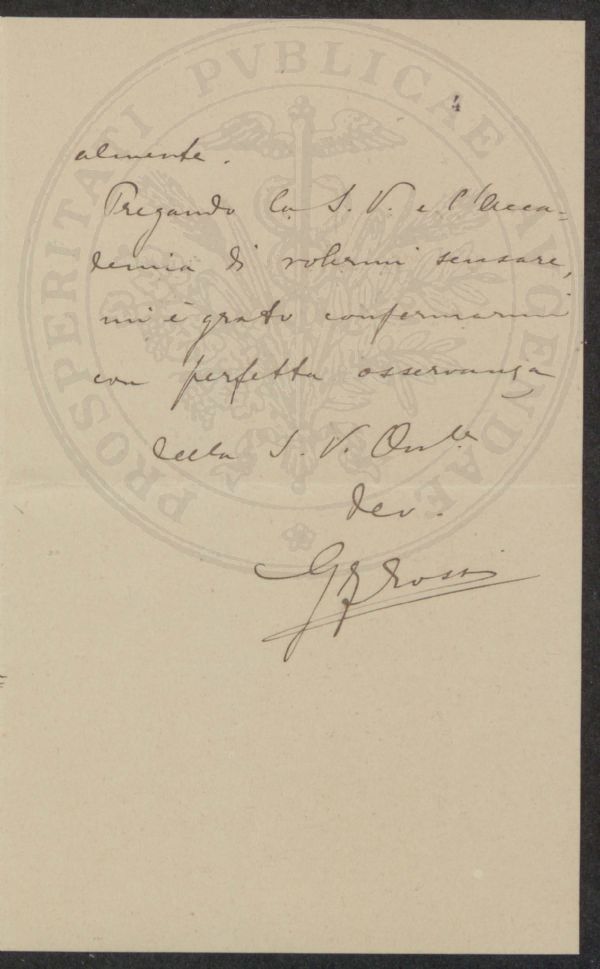 4
almente.
Pregando la S. V. e l'Acca-
demia di volermi scusare,
mi è grato confermarmi
con perfetta osservanza
della S. V. On.le
dev.
G Rossi
PROSPERITATI PVBLICAE AVGENDAE